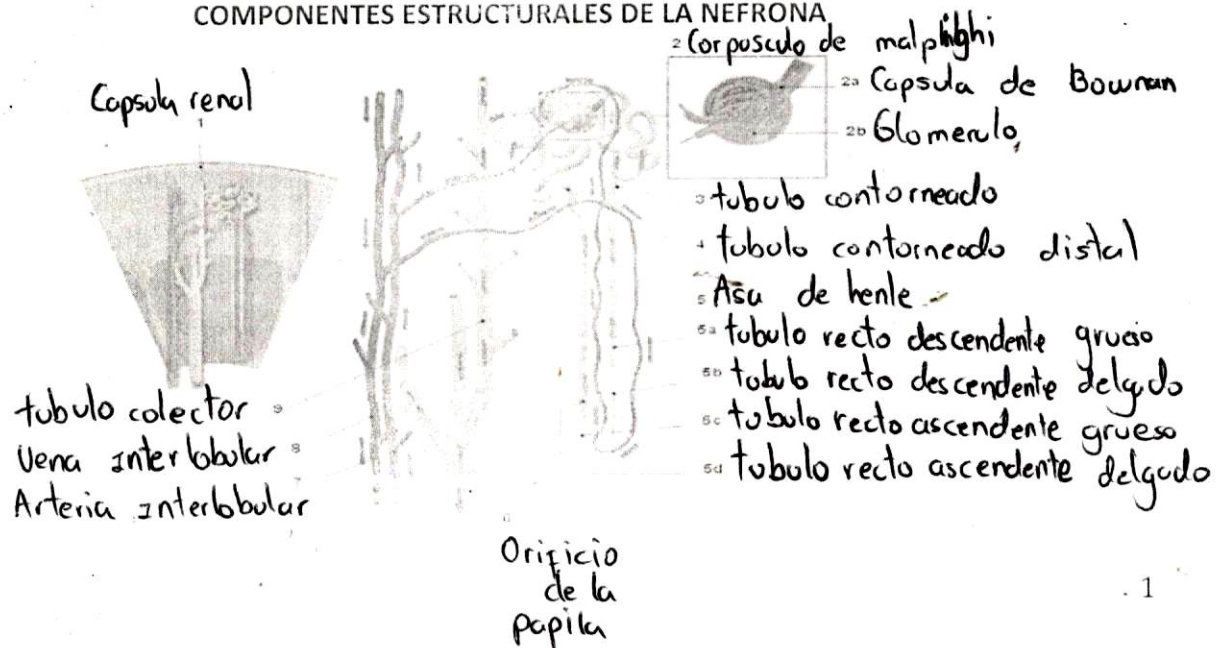 COMPONENTES ESTRUCTURALES DE LA NEFRONA
2 Corpusculo de malpighi
Capsula renal
1
2a Capsula de Bowman
2b Glomerulo
3 tubulo contorneado
4 tubulo contorneado distal
5 Asa de henle
5a tubulo recto descendente grueso
5b tubulo recto descendente delgado
5c tubulo recto ascendente grueso
5d tubulo recto ascendente delgado
tubulo colector 9
Vena interlobular 8
Arteria interlobular 7
6
Orificio
de la
papila
1